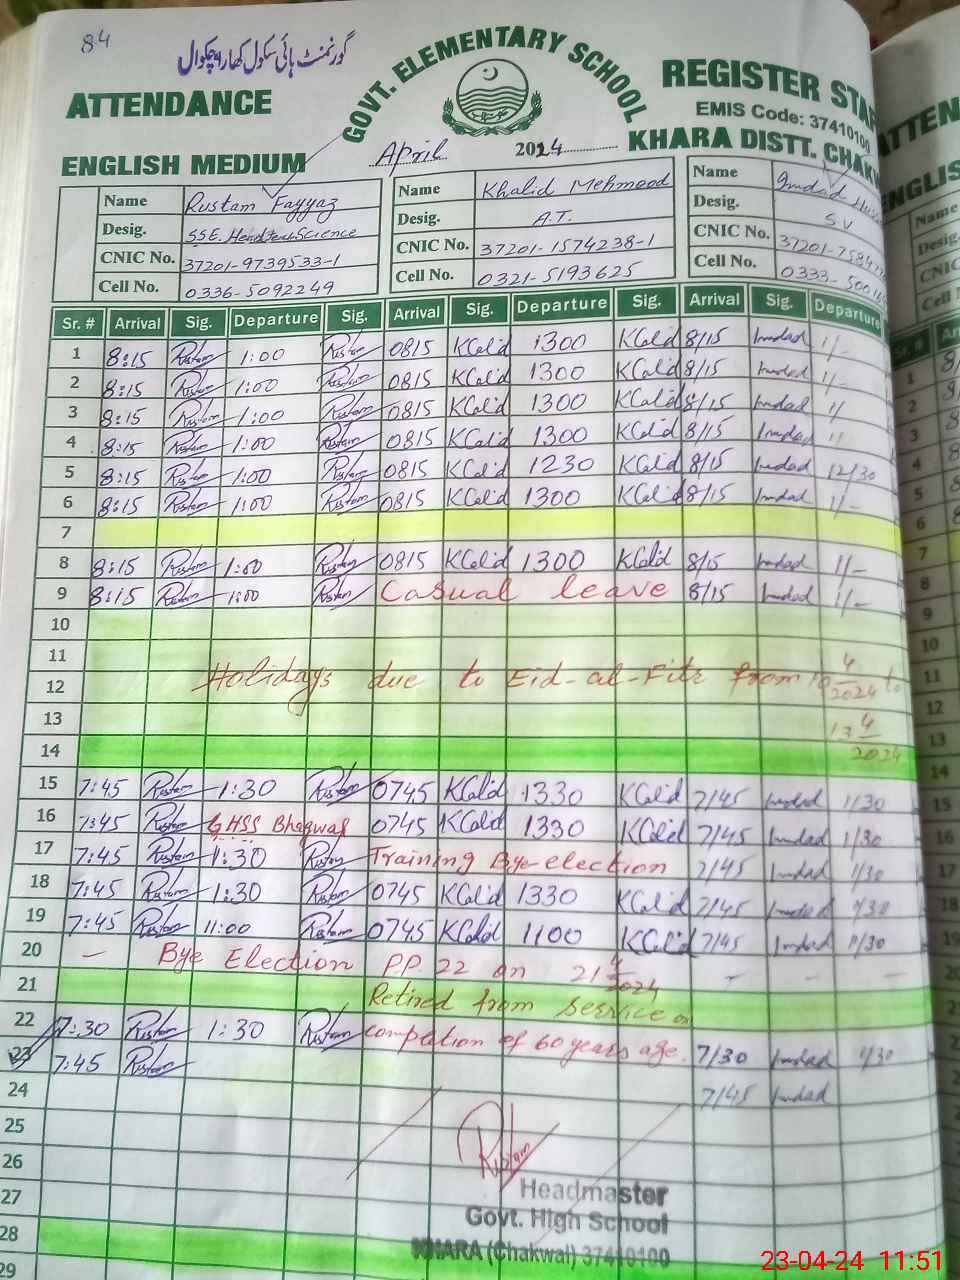 84
گورنمنٹ ہائی سکول کھارا چکوال
GOVT. ELEMENTARY SCHOOL
ATTENDANCE
REGISTER
EMIS Code: 37410100
ENGLISH MEDIUM
April 2024
KHARA DISTT.
Name Rustam Fayyaz Name Khalid Mehmood Name Imdad
Desig. SSE. Science Desig. A.T. Desig. S.V
CNIC No. 37201-9739533-1 CNIC No. 37201-1574238-1 CNIC No.
Cell No. 0336-5092249 Cell No. 0321-5193625 Cell No.
Sr. # Arrival Sig. Departure Sig. Arrival Sig. Departure Sig. Arrival Sig. Departure
1 8:15 Rustam 1:00 Rustam 0815 KCalid 1300 KCalid 8/15 Imdad 1/-
2 8:15 Rustam 1:00 Rustam 0815 KCalid 1300 KCalid 8/15 Imdad 1/-
3 8:15 Rustam 1:00 Rustam 0815 KCalid 1300 KCalid 8/15 Imdad 1/
4 8:15 Rustam 1:00 Rustam 0815 KCalid 1300 KCalid 8/15 Imdad
5 8:15 Rustam 1:00 Rustam 0815 KCalid 1230 KCalid 8/15 Imdad 12/30
6 8:15 Rustam 1:00 Rustam 0815 KCalid 1300 KCalid 8/15 Imdad 1/-
7
8 8:15 Rustam 1:00 Rustam 0815 KCalid 1300 KCalid 8/15 Imdad 1/-
9 8:15 Rustam 1:00 Rustam Casual leave 8/15 Imdad 1/-
10
11
12 Holidays due to Eid-al-Fitr from 10 4/2024 to
13 13 4/2024
14
15 7:45 Rustam 1:30 Rustam 0745 KCalid 1330 KCalid 7/45 Imdad 1/30
16 7:45 Rustam GHSS Bhagwal 0745 KCalid 1330 KCalid 7/45 Imdad 1/30
17 7:45 Rustam 1:30 Rustam Training Bye-election 7/45 Imdad 1/30
18 7:45 Rustam 1:30 Rustam 0745 KCalid 1330 KCalid 7/45 Imdad 1/30
19 7:45 Rustam 11:00 Rustam 0745 KCalid 1100 KCalid 7/45 Imdad 11/30
20 - Bye Election P.P. 22 on 21 4/2024 - - -
21 Retired from service on
22 7:30 Rustam 1:30 Rustam completion of 60 years age. 7/30 Imdad 1/30
23 7:45 Rustam 7/45 Imdad
24
25
26
27
28
29
Rustam
Headmaster
Govt. High School
KHARA (Chakwal) 37410100
23-04-24 11:51